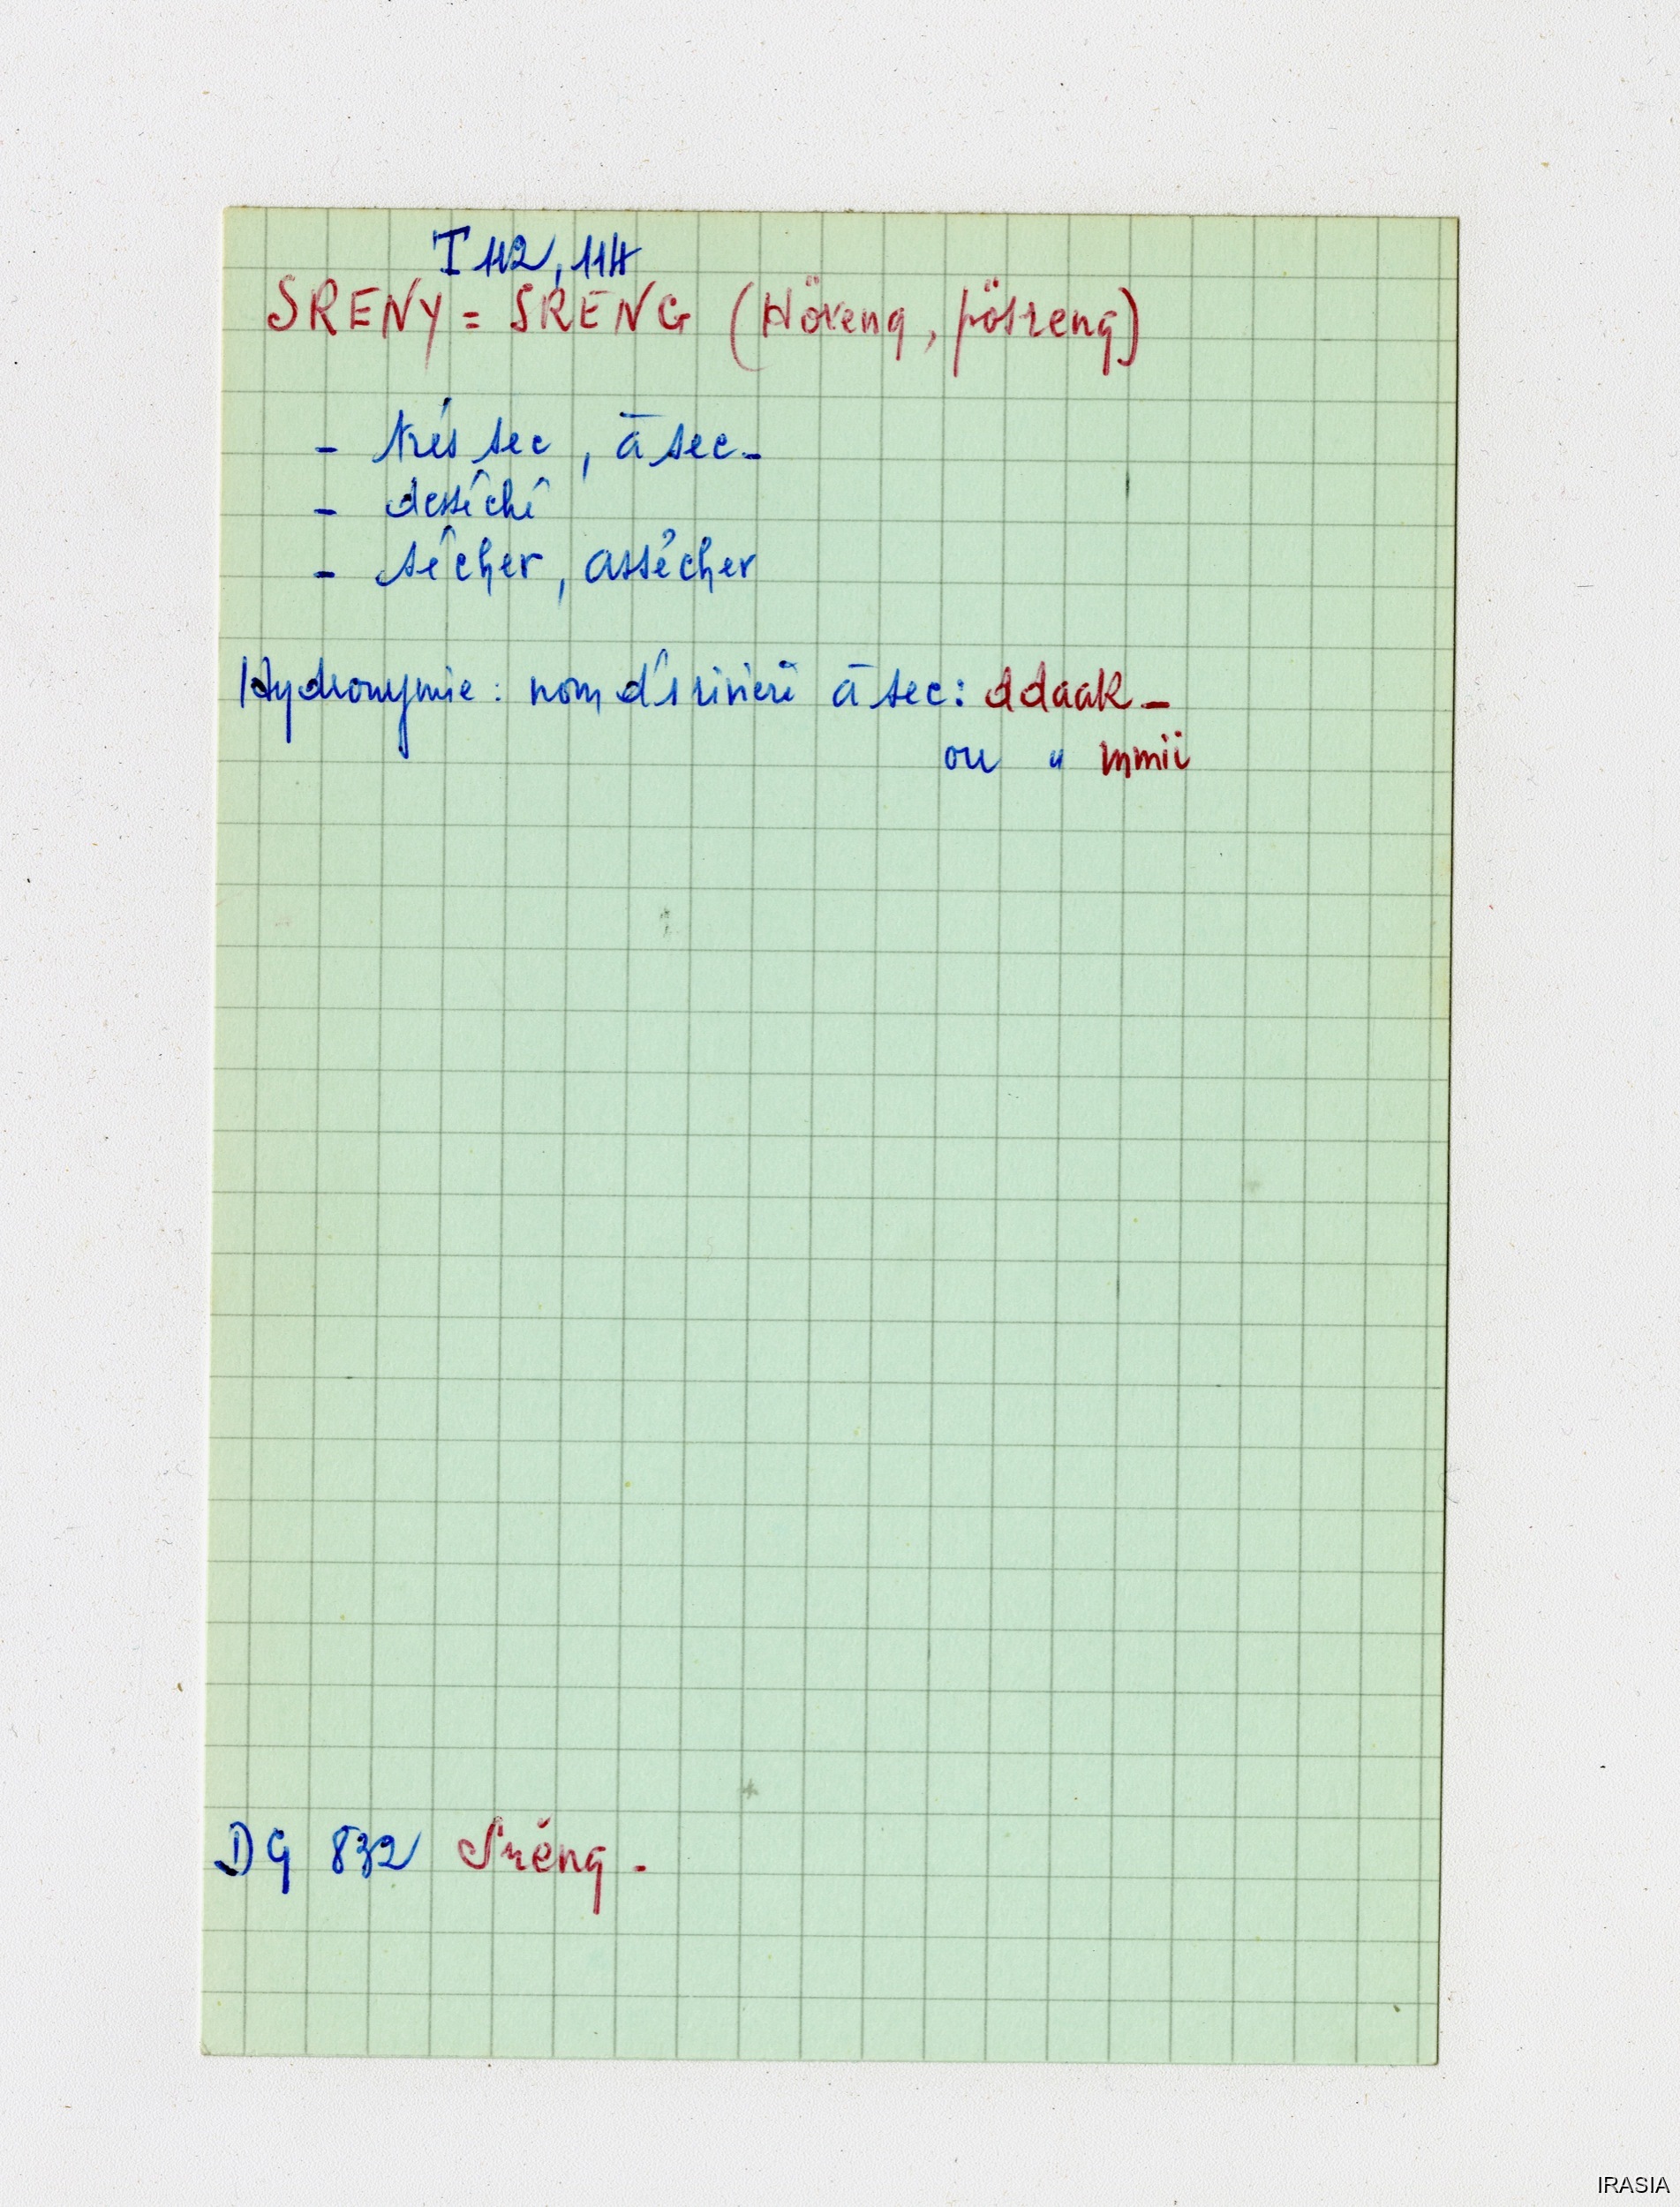 I 112, 114
SRENY = SRENG (Höreng, pösreng)
- très sec, à sec -
- desséché
- sécher, assécher
Hydronymie : nom d's rivière à sec : ddaak -
ou " mmii
DG 832 Srêng -
IRASIA